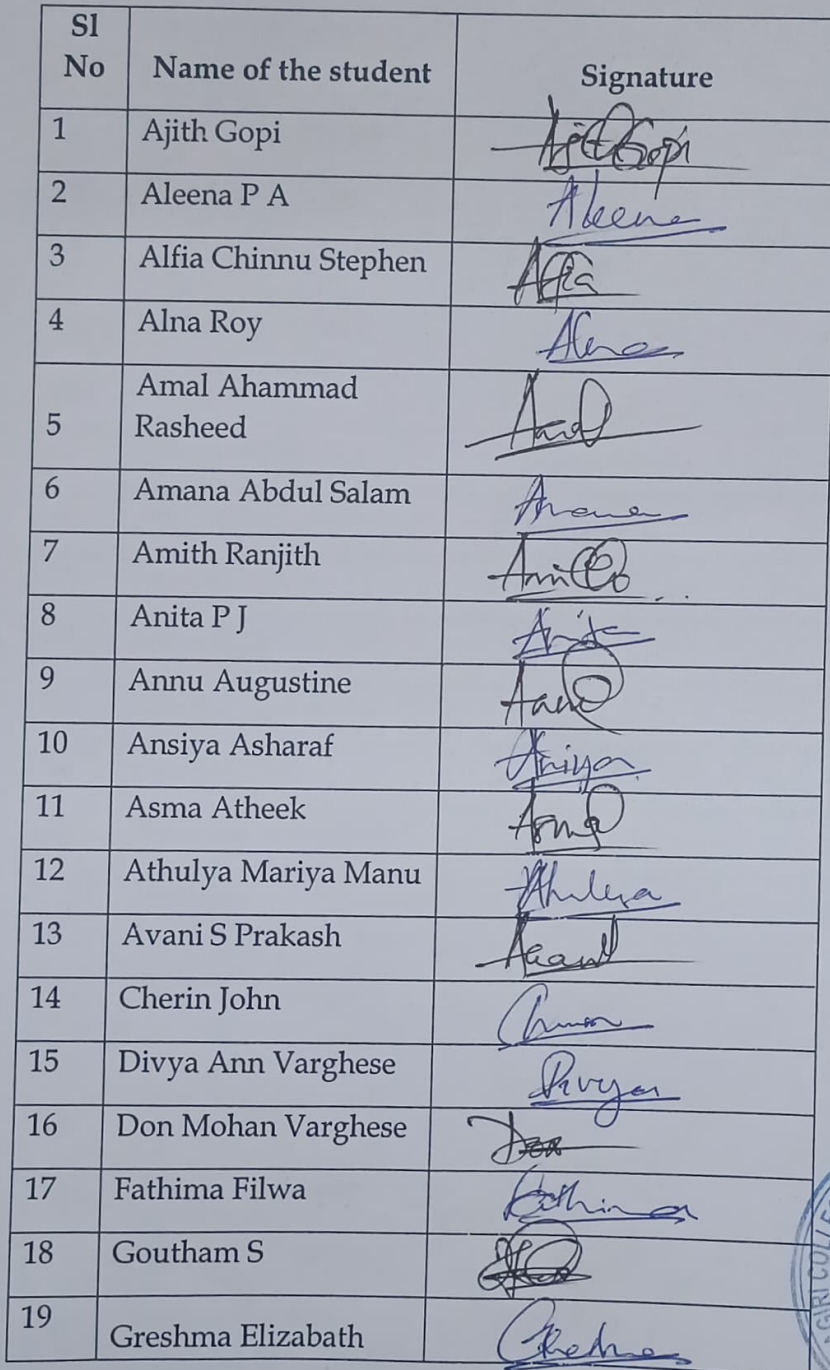 Sl
No Name of the student Signature
1 Ajith Gopi AjithGopi
2 Aleena P A Aleena
3 Alfia Chinnu Stephen Alfia
4 Alna Roy Alna
Amal Ahammad
5 Rasheed Amal
6 Amana Abdul Salam Amana
7 Amith Ranjith Amith
8 Anita P J Anita
9 Annu Augustine
10 Ansiya Asharaf Ansiya
11 Asma Atheek Asma
12 Athulya Mariya Manu Athulya
13 Avani S Prakash
14 Cherin John
15 Divya Ann Varghese Divya
16 Don Mohan Varghese Don
17 Fathima Filwa Fathima
18 Goutham S
19 Greshma Elizabath Greshma
GIRI COLLE